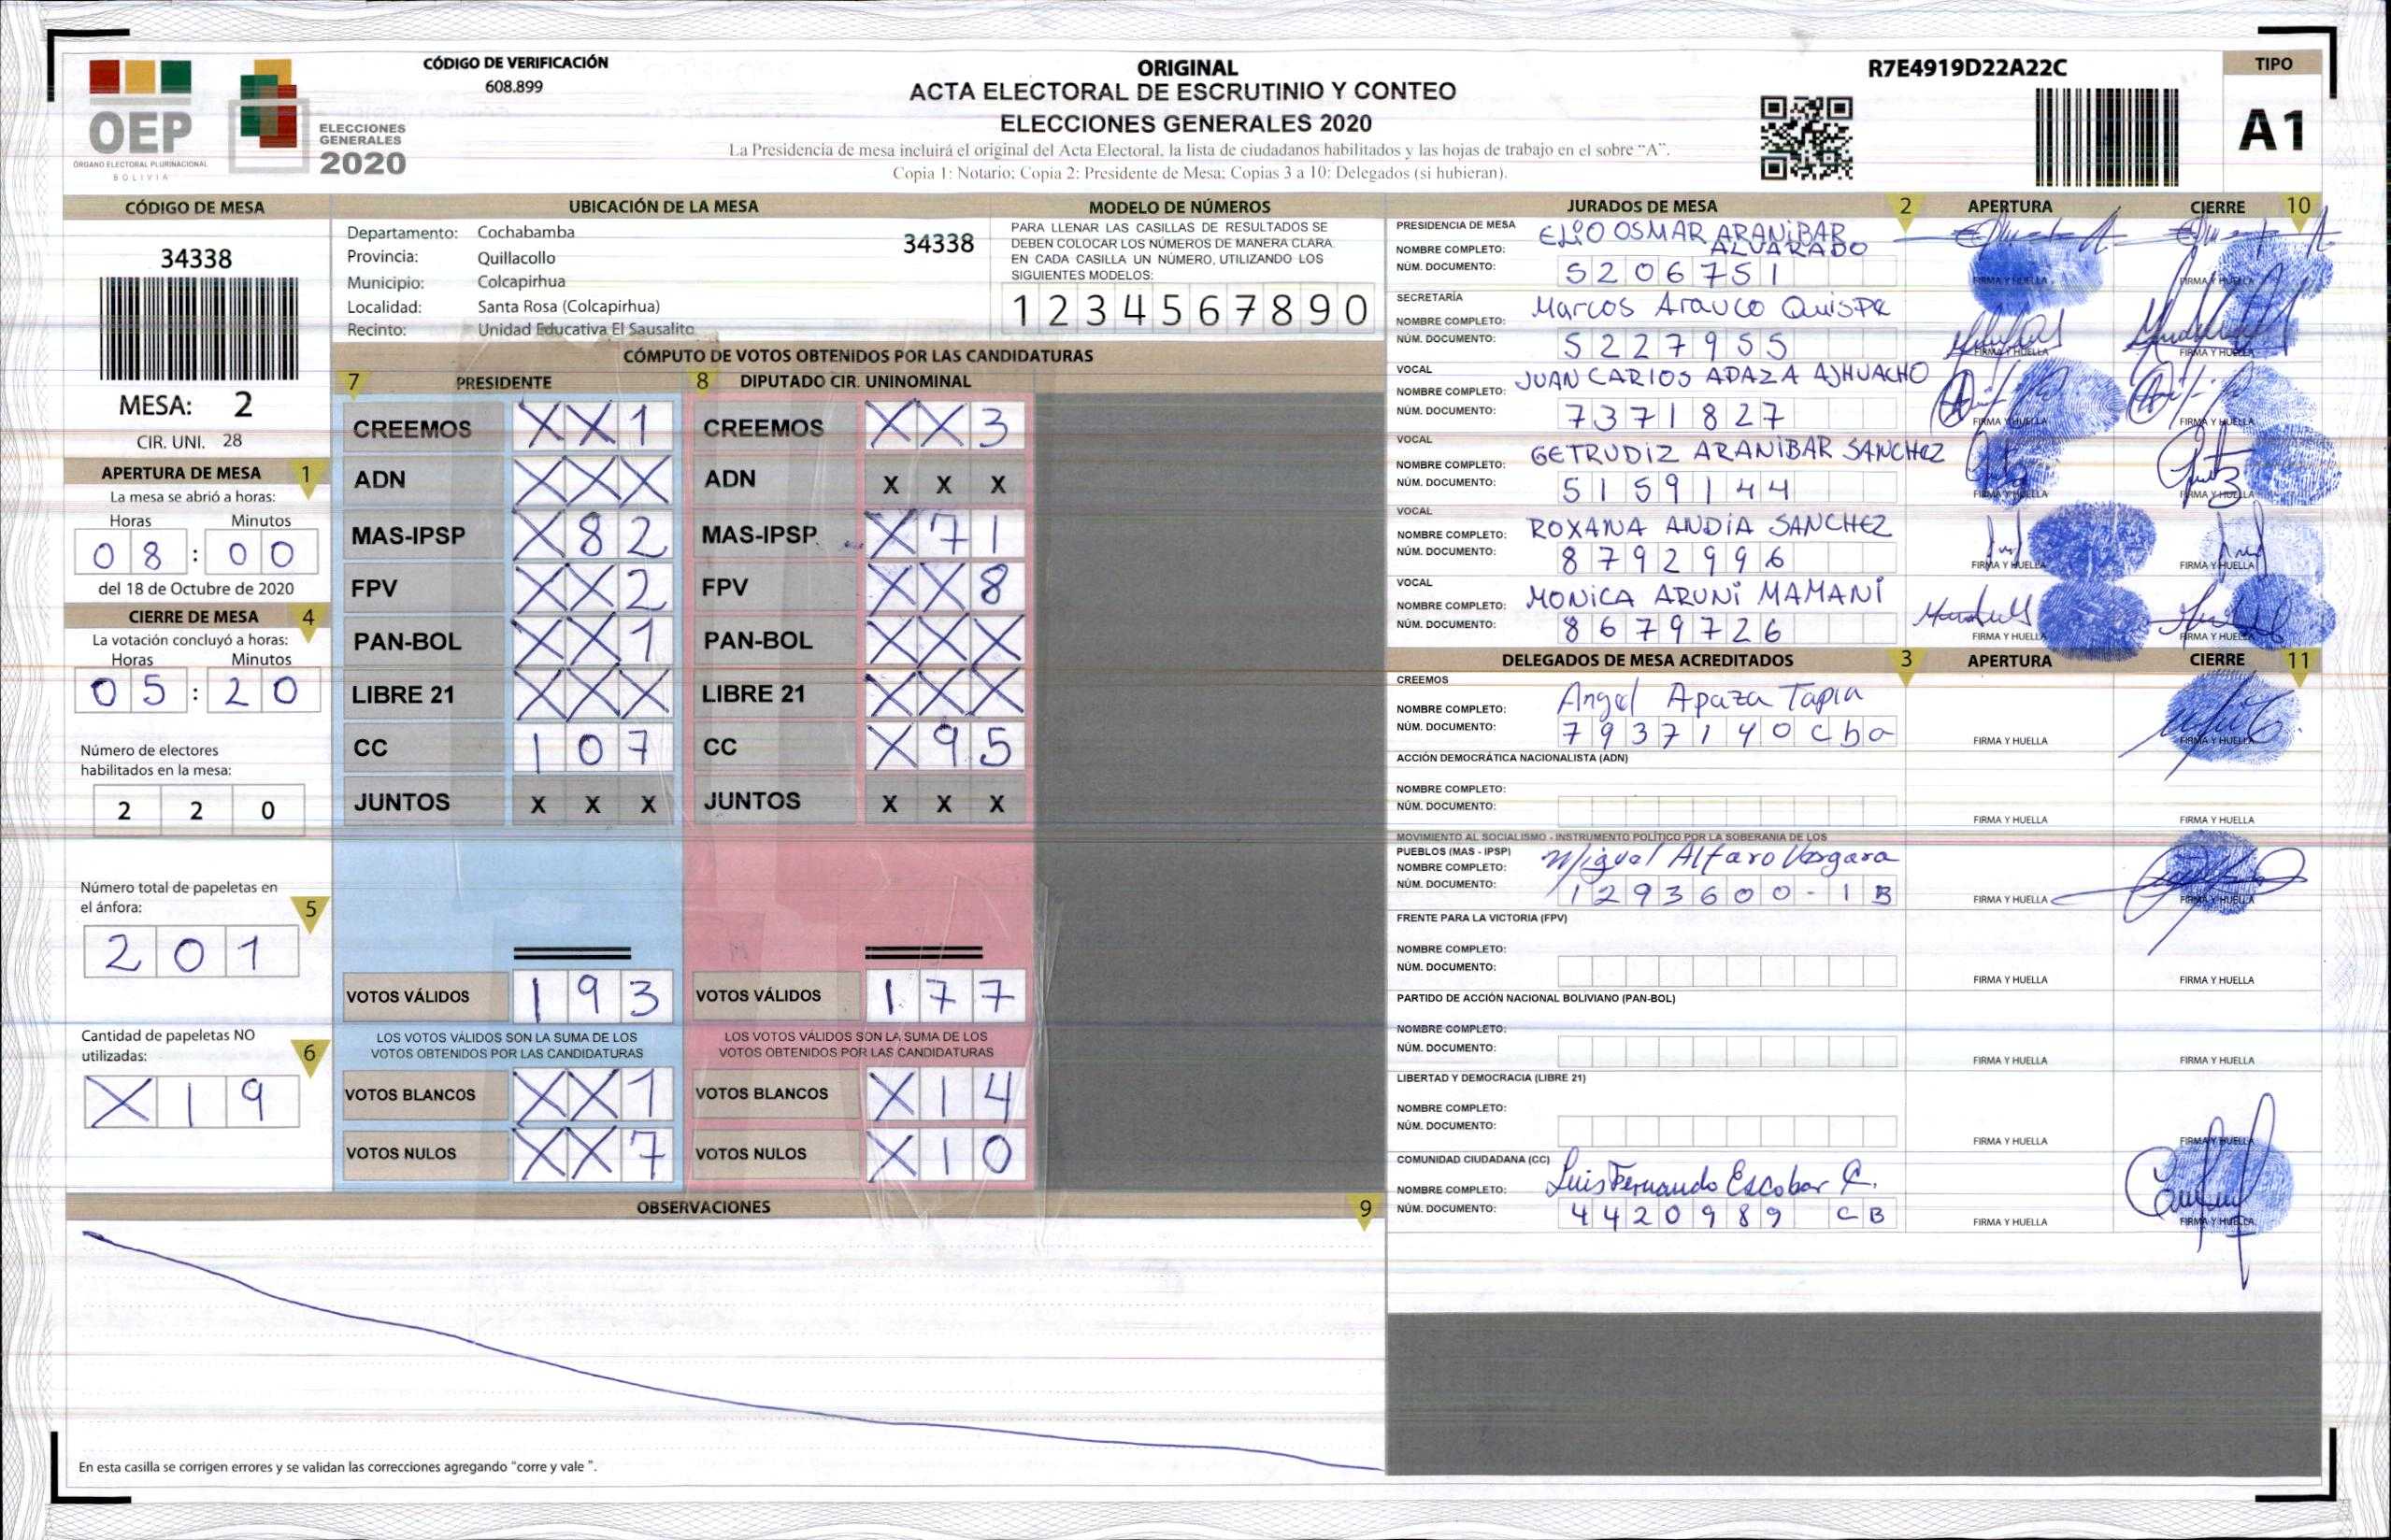 OEP
ÓRGANO ELECTORAL PLURINACIONAL
BOLIVIA
ELECCIONES
GENERALES
2020
CÓDIGO DE VERIFICACIÓN
608.899
ORIGINAL
ACTA ELECTORAL DE ESCRUTINIO Y CONTEO
ELECCIONES GENERALES 2020
La Presidencia de mesa incluirá el original del Acta Electoral, la lista de ciudadanos habilitados y las hojas de trabajo en el sobre "A".
Copia 1: Notario; Copia 2: Presidente de Mesa; Copias 3 a 10: Delegados (si hubieran).
R7E4919D22A22C
TIPO
A1
CÓDIGO DE MESA
34338
MESA: 2
CIR. UNI. 28
APERTURA DE MESA 1
La mesa se abrió a horas:
Horas Minutos
08 : 00
del 18 de Octubre de 2020
CIERRE DE MESA 4
La votación concluyó a horas:
Horas Minutos
05 : 20
Número de electores
habilitados en la mesa:
2 2 0
Número total de papeletas en
el ánfora: 5
2 0 1
Cantidad de papeletas NO
utilizadas: 6
X 1 9
UBICACIÓN DE LA MESA
Departamento: Cochabamba
34338
Provincia: Quillacollo
Municipio: Colcapirhua
Localidad: Santa Rosa (Colcapirhua)
Recinto: Unidad Educativa El Sausalito
MODELO DE NÚMEROS
PARA LLENAR LAS CASILLAS DE RESULTADOS SE
DEBEN COLOCAR LOS NÚMEROS DE MANERA CLARA
EN CADA CASILLA UN NÚMERO, UTILIZANDO LOS
SIGUIENTES MODELOS:
1 2 3 4 5 6 7 8 9 0
CÓMPUTO DE VOTOS OBTENIDOS POR LAS CANDIDATURAS
7 PRESIDENTE 8 DIPUTADO CIR. UNINOMINAL
CREEMOS X X 1 CREEMOS X X 3
ADN X X X ADN X X X
MAS-IPSP X 8 2 MAS-IPSP X 7 1
FPV X X 2 FPV X X 8
PAN-BOL X X 1 PAN-BOL X X X
LIBRE 21 X X X LIBRE 21 X X X
CC 1 0 7 CC X 9 5
JUNTOS X X X JUNTOS X X X
VOTOS VÁLIDOS 1 9 3 VOTOS VÁLIDOS 1 7 7
LOS VOTOS VÁLIDOS SON LA SUMA DE LOS LOS VOTOS VÁLIDOS SON LA SUMA DE LOS
VOTOS OBTENIDOS POR LAS CANDIDATURAS VOTOS OBTENIDOS POR LAS CANDIDATURAS
VOTOS BLANCOS X X 1 VOTOS BLANCOS X 1 4
VOTOS NULOS X X 7 VOTOS NULOS X 1 0
OBSERVACIONES 9
En esta casilla se corrigen errores y se validan las correcciones agregando "corre y vale ".
JURADOS DE MESA 2 APERTURA CIERRE 10
PRESIDENCIA DE MESA
NOMBRE COMPLETO: ELIO OSMAR ARANIBAR
ALVARADO
NÚM. DOCUMENTO: 5206751
FIRMA Y HUELLA FIRMA Y HUELLA
SECRETARÍA
NOMBRE COMPLETO: Marcos Arauco Quispe
NÚM. DOCUMENTO: 5227955
FIRMA Y HUELLA FIRMA Y HUELLA
VOCAL
NOMBRE COMPLETO: JUAN CARLOS APAZA AJHUACHO
NÚM. DOCUMENTO: 7371827
FIRMA Y HUELLA FIRMA Y HUELLA
VOCAL
NOMBRE COMPLETO: GETRUDIZ ARANIBAR SANCHEZ
NÚM. DOCUMENTO: 5159144
FIRMA Y HUELLA FIRMA Y HUELLA
VOCAL
NOMBRE COMPLETO: ROXANA ANDIA SANCHEZ
NÚM. DOCUMENTO: 8792996
FIRMA Y HUELLA FIRMA Y HUELLA
VOCAL
NOMBRE COMPLETO: MONICA ARUNI MAMANI
NÚM. DOCUMENTO: 8679726
FIRMA Y HUELLA FIRMA Y HUELLA
DELEGADOS DE MESA ACREDITADOS 3 APERTURA CIERRE 11
CREEMOS
NOMBRE COMPLETO: Angel Apaza Tapia
NÚM. DOCUMENTO: 7937140cba
FIRMA Y HUELLA FIRMA Y HUELLA
ACCIÓN DEMOCRÁTICA NACIONALISTA (ADN)
NOMBRE COMPLETO:
NÚM. DOCUMENTO:
FIRMA Y HUELLA FIRMA Y HUELLA
MOVIMIENTO AL SOCIALISMO - INSTRUMENTO POLÍTICO POR LA SOBERANIA DE LOS
PUEBLOS (MAS - IPSP)
NOMBRE COMPLETO: Miguel Alfaro Vargara
NÚM. DOCUMENTO: 1293600-1B
FIRMA Y HUELLA FIRMA Y HUELLA
FRENTE PARA LA VICTORIA (FPV)
NOMBRE COMPLETO:
NÚM. DOCUMENTO:
FIRMA Y HUELLA FIRMA Y HUELLA
PARTIDO DE ACCIÓN NACIONAL BOLIVIANO (PAN-BOL)
NOMBRE COMPLETO:
NÚM. DOCUMENTO:
FIRMA Y HUELLA FIRMA Y HUELLA
LIBERTAD Y DEMOCRACIA (LIBRE 21)
NOMBRE COMPLETO:
NÚM. DOCUMENTO:
FIRMA Y HUELLA FIRMA Y HUELLA
COMUNIDAD CIUDADANA (CC)
NOMBRE COMPLETO: Luis Fernando Escobar C.
NÚM. DOCUMENTO: 4420989 CB
FIRMA Y HUELLA FIRMA Y HUELLA